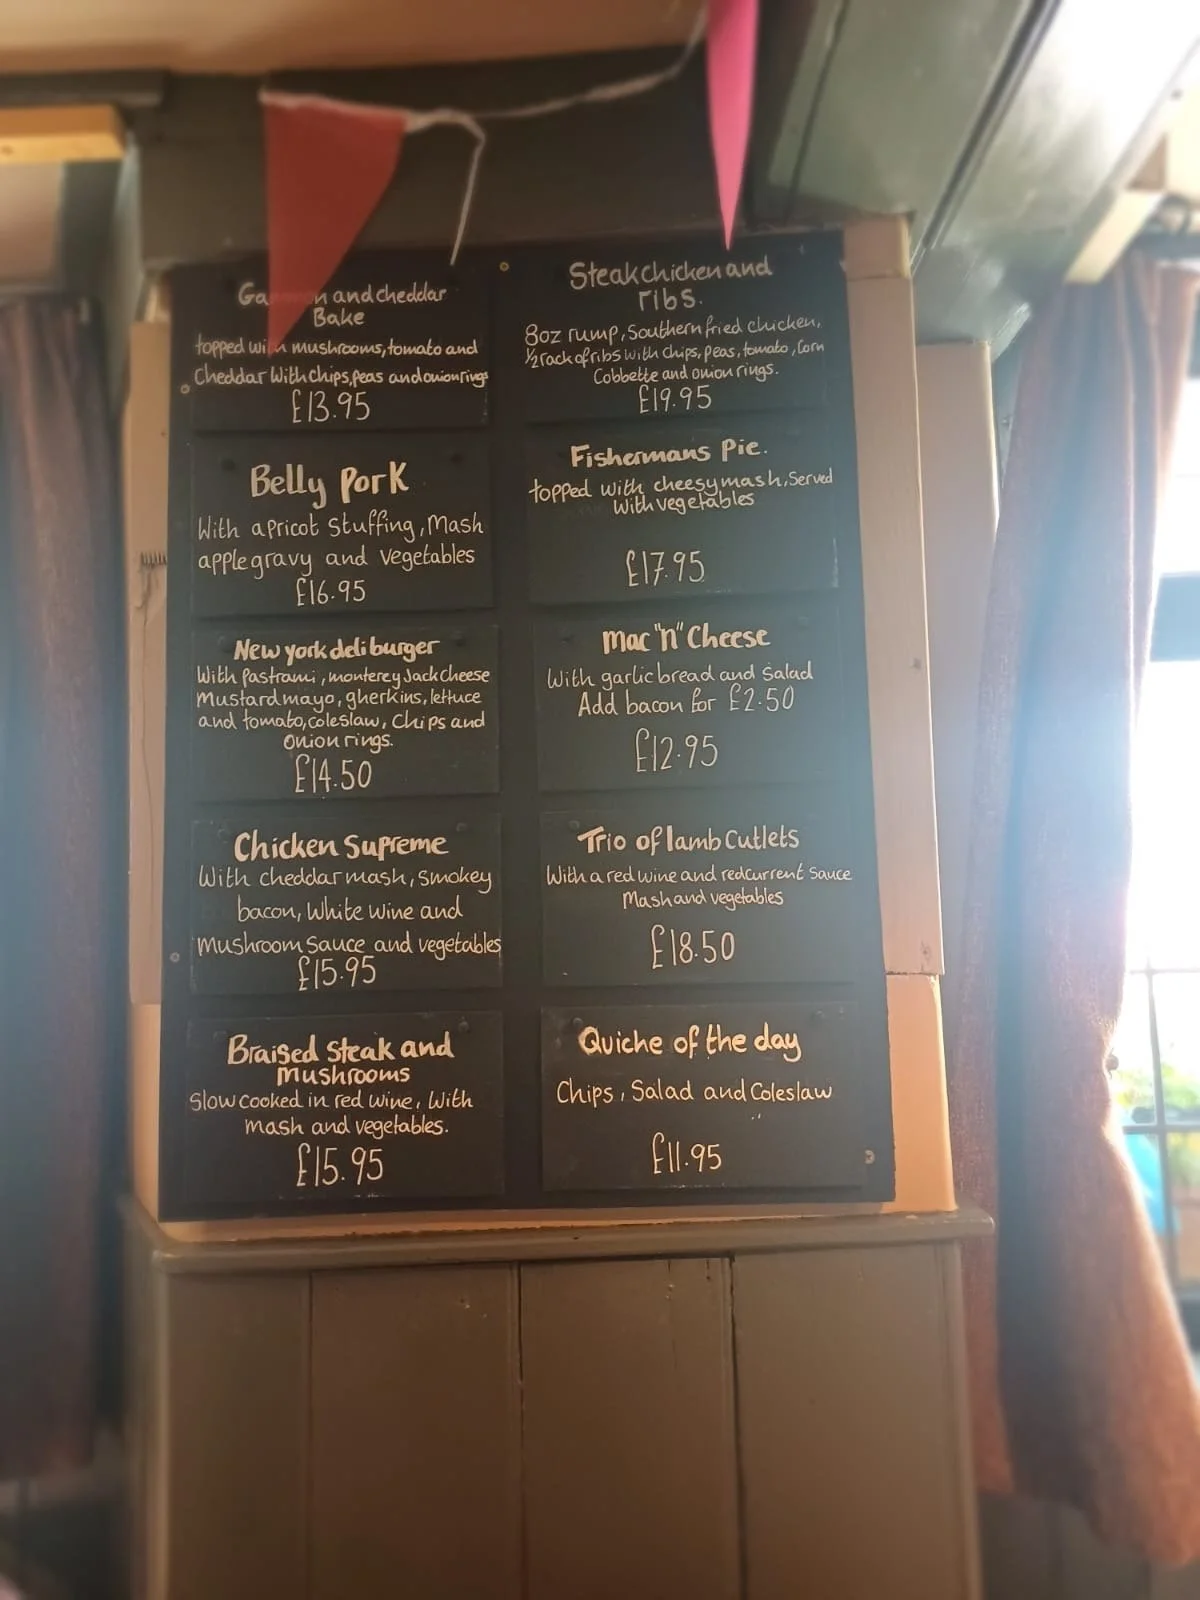 and cheddar
Bake
topped with mushrooms, tomato and
Cheddar With Chips, peas and onion rings
£13.95
Belly Pork
With apricot Stuffing, Mash
apple gravy and vegetables
£16.95
New york deli burger
With Pastrami, monterey Jack Cheese
Mustard mayo, gherkins, lettuce
and tomato, coleslaw, Chips and
Onion rings.
£14.50
Chicken Supreme
With cheddar mash, smokey
bacon, White Wine and
Mushroom Sauce and vegetables
£15.95
Braised Steak and
Mushrooms
Slow cooked in red wine, With
mash and vegetables.
£15.95
Steak chicken and
ribs.
8oz rump, Southern fried chicken,
½ rack of ribs with Chips, peas, tomato, Corn
Cobbette and onion rings.
£19.95
Fishermans Pie.
topped with cheesy mash, Served
With vegetables
£17.95
Mac "n" Cheese
With garlic bread and Salad
Add bacon for £2.50
£12.95
Trio of lamb Cutlets
With a red wine and redcurrent Sauce
Mash and vegetables
£18.50
Quiche of the day
Chips, Salad and Coleslaw
£11.95